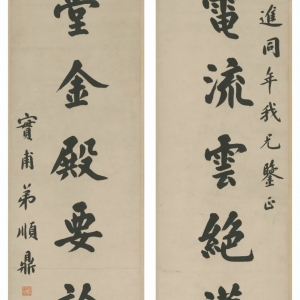 進同年我兄鑒正
電流雲絕
堂金殿要
實甫弟順鼎